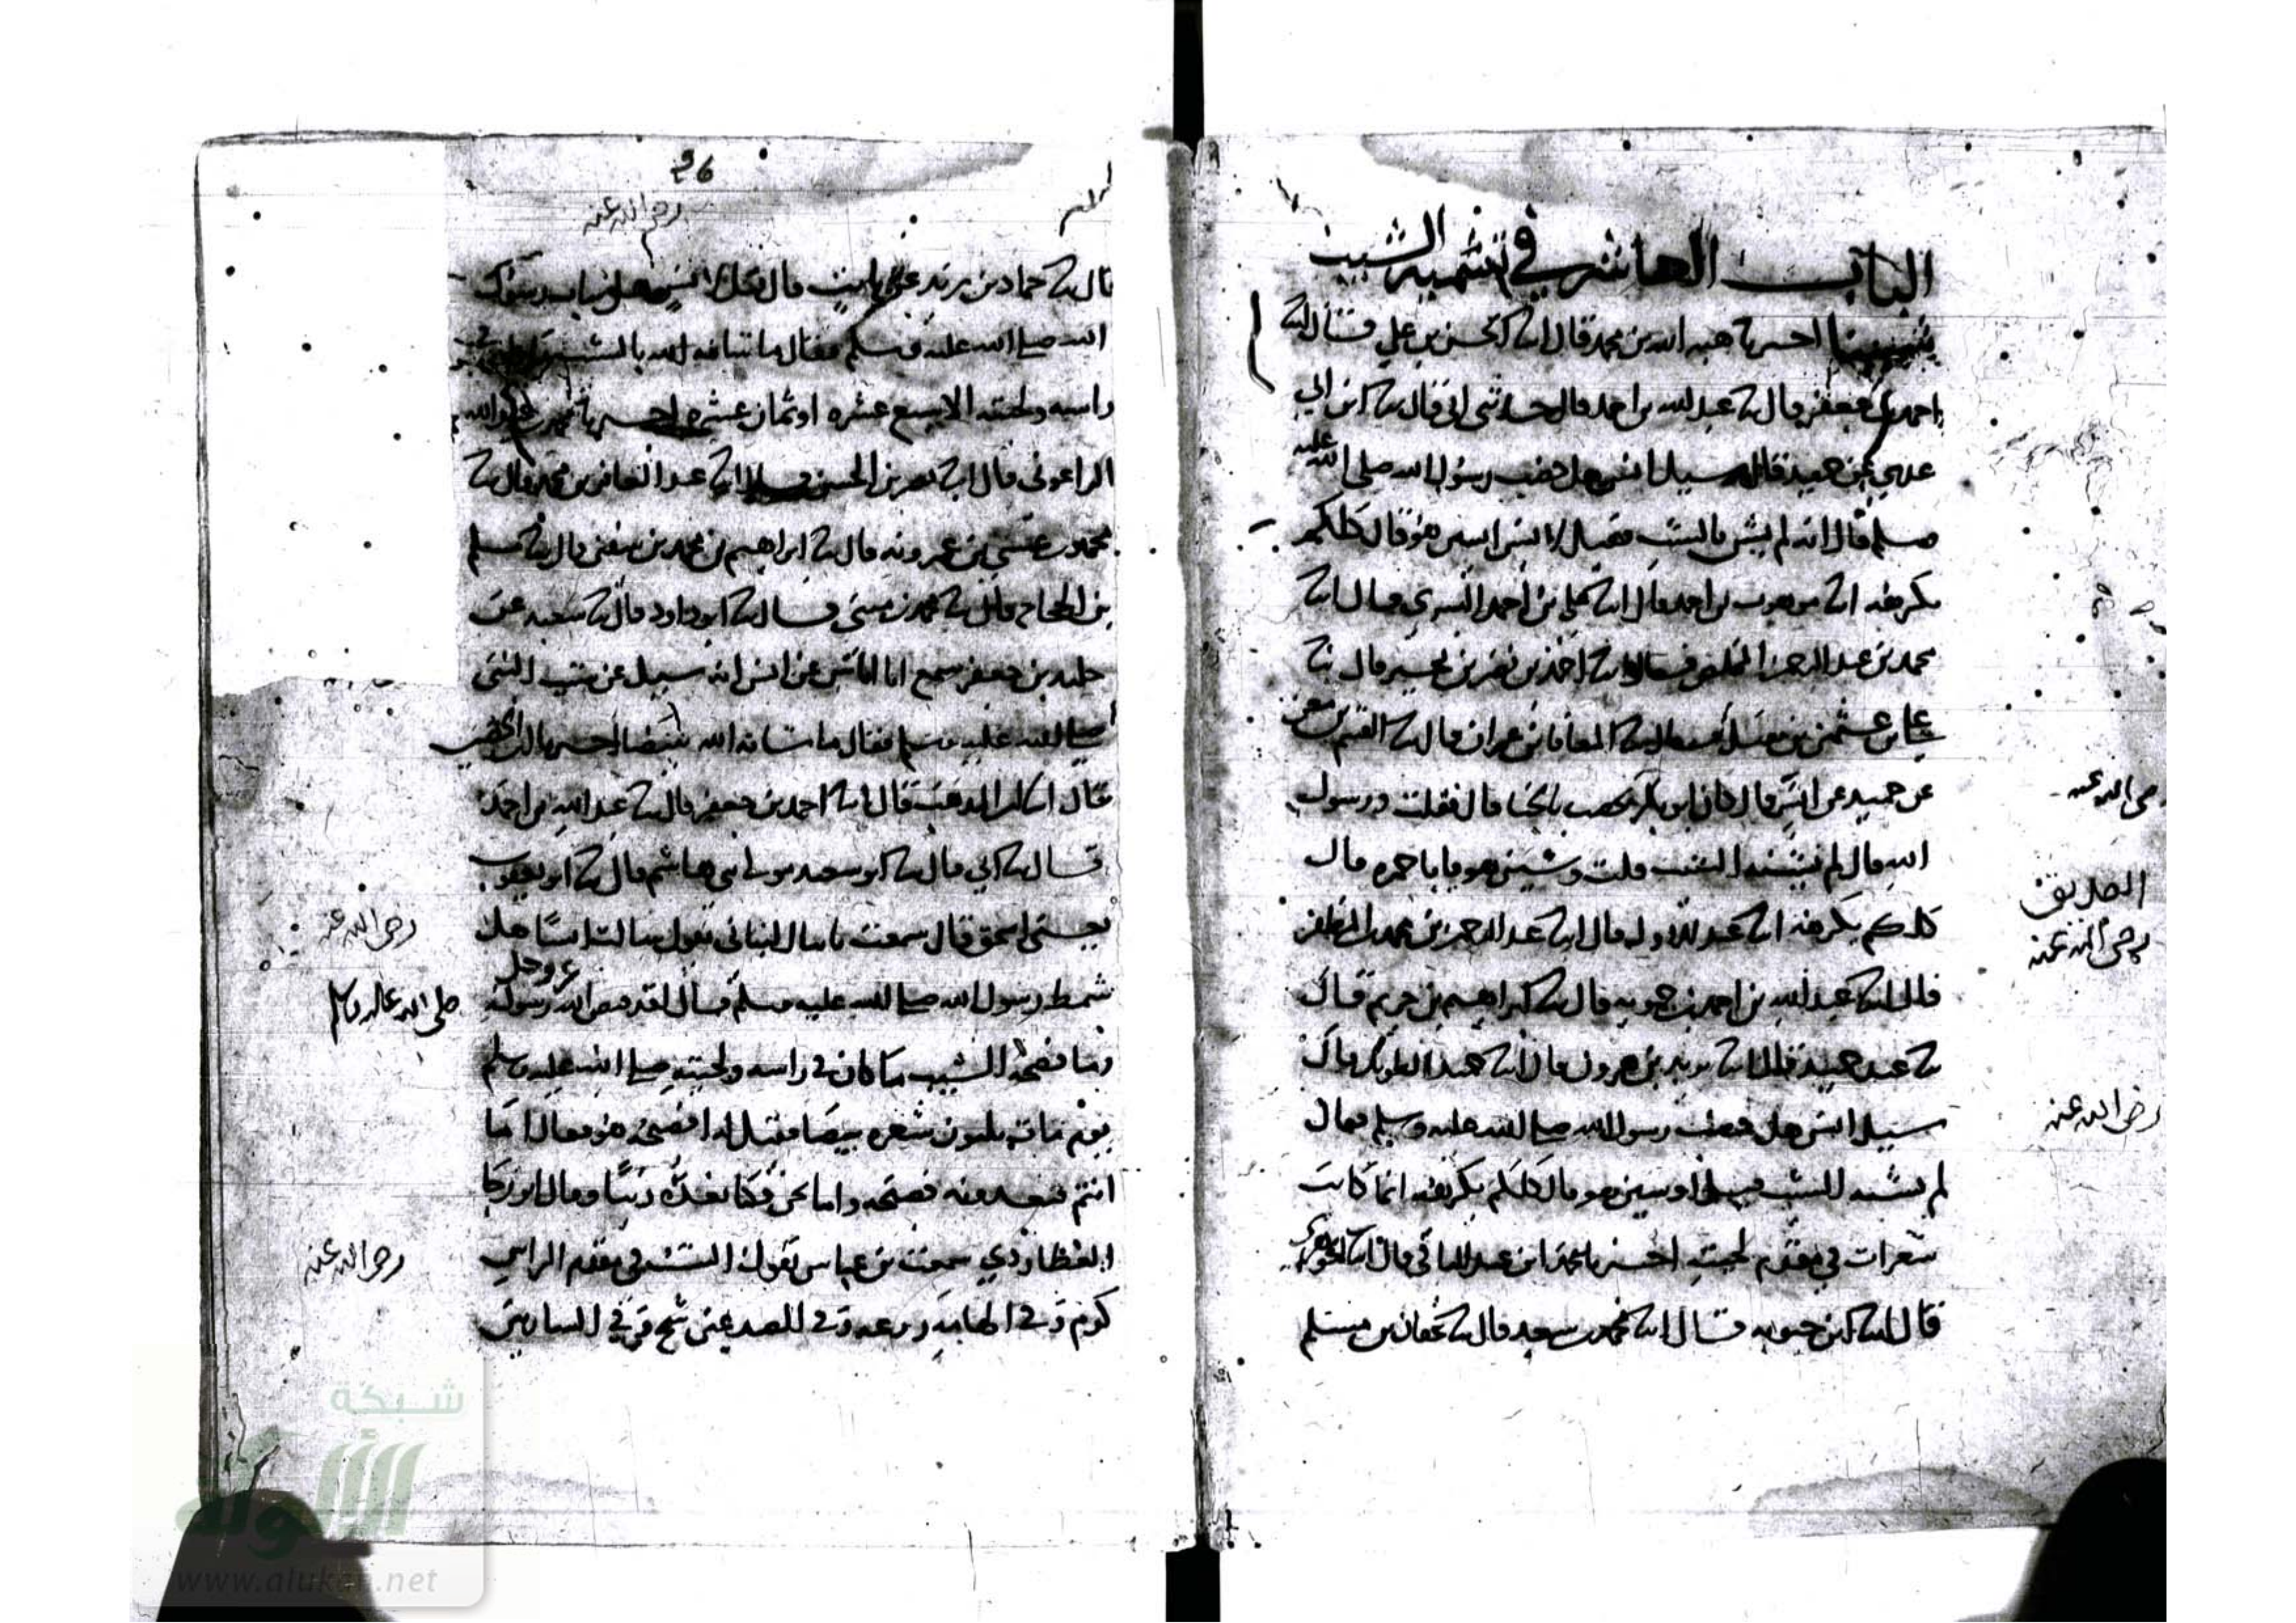 الباب العاشر في تسمية الشيب
شينا اخبرنا هبه الله بن محمد قال انا الحسن بن علي قال انا
احمد بن جعفر قال نا عبد الله بن احمد قال حدثني ابي قال نا ابن ابي
عدي عن حميد قال سيل انس هل خضب رسول الله صلى الله عليه
وسلم قال انه لم يشن بالشيب فقيل لانس اشين هو قال كلكم
يكرهه انا موهوب بن احمد قال انا علي بن احمد البسري قال انا
محمد بن عبد الرحمن المخلص قال نا احمد بن نصر بن بحير قال نا
علي بن عثمن بن نفيل قال نا المعافا بن عمران قال نا القسم بن معن
عن حميد عن انس قال كان ابو بكر يخضب بالحنا قال فقلت ورسول
الله قال لم يشنه الشيب قلت وشين هو يا باحمزه قال
كلكم يكرهه انا عبد الاول قال انا عبد الرحمن بن محمد بن المظفر
قال انا عبد الله بن احمد بن حمويه قال نا ابراهيم بن خريم قال
نا عبد بن حميد قال انا يزيد بن هرون قال انا حميد الطويل قال
سيل انس هل خضب رسول الله صلى الله عليه وسلم فقال
لم يشنه الشيب قيل او شين هو قال كلكم يكرهه انما كانت
شعرات في مقدم لحيته اخبرنا محمد ابن عبد الباقي قال انا الجوهري
قال انا ابن حيويه قال انا محمد بن سعد قال نا عفان بن مسلم
رضي الله عنه
الصديق
رضي الله عنه
رضي الله عنه
26
رضي الله عنه
قال نا حماد بن زيد عن ثابت قال قيل لانس هل شاب رسول
الله صلى الله عليه وسلم فقال ما شانه الله بالشيب
راسه ولحيته الا سبع عشره او ثمان عشره اخبرنا علي بن عبيد الله
الزاغوني قال انا نصر بن الحسن قال انا عبد الغافر بن محمد قال نا
محمد بن عيسى بن عمرويه قال نا ابراهيم بن محمد بن سفين قال نا مسلم
بن الحجاج قال نا محمد بن مثنى قال نا ابو داود قال نا شعبه عن
خليد بن جعفر سمع ابا اياس عن انس انه سيل عن شيب النبي
صلى الله عليه وسلم فقال ما شانه الله ببيضا اخبرنا ابن الحصين
قال انا ابن المذهب قال انا احمد بن جعفر قال نا عبد الله بن احمد
قال نا ابي قال نا ابو سعيد مولى بني هاشم قال نا ابو يعقوب
يعني اسحق قال سمعت ثابتا البناني يقول سالت انسا هل
شمط رسول الله صلى الله عليه وسلم قال لقد قبض الله عز وجل رسوله
وما فضحه الشيب ما كان في راسه ولحيته صلى الله عليه وسلم
يوم مات ثلثون شعره بيضا فقيل له افضيحه هو فقال اما
انتم فتعدونه فضيحه واما نحن فكنا نعده زينا وقال ابو زكريا
العطاردي سمعت بن عباس يقول الشيب في مقدم الراس
كرم وفي الهامه ورعه وفي الصدغين شح وفي الشاربين
رضي الله عنه
صلى الله عليه وسلم
رضي الله عنه
شبكة
الألوكة
www.alukah.net